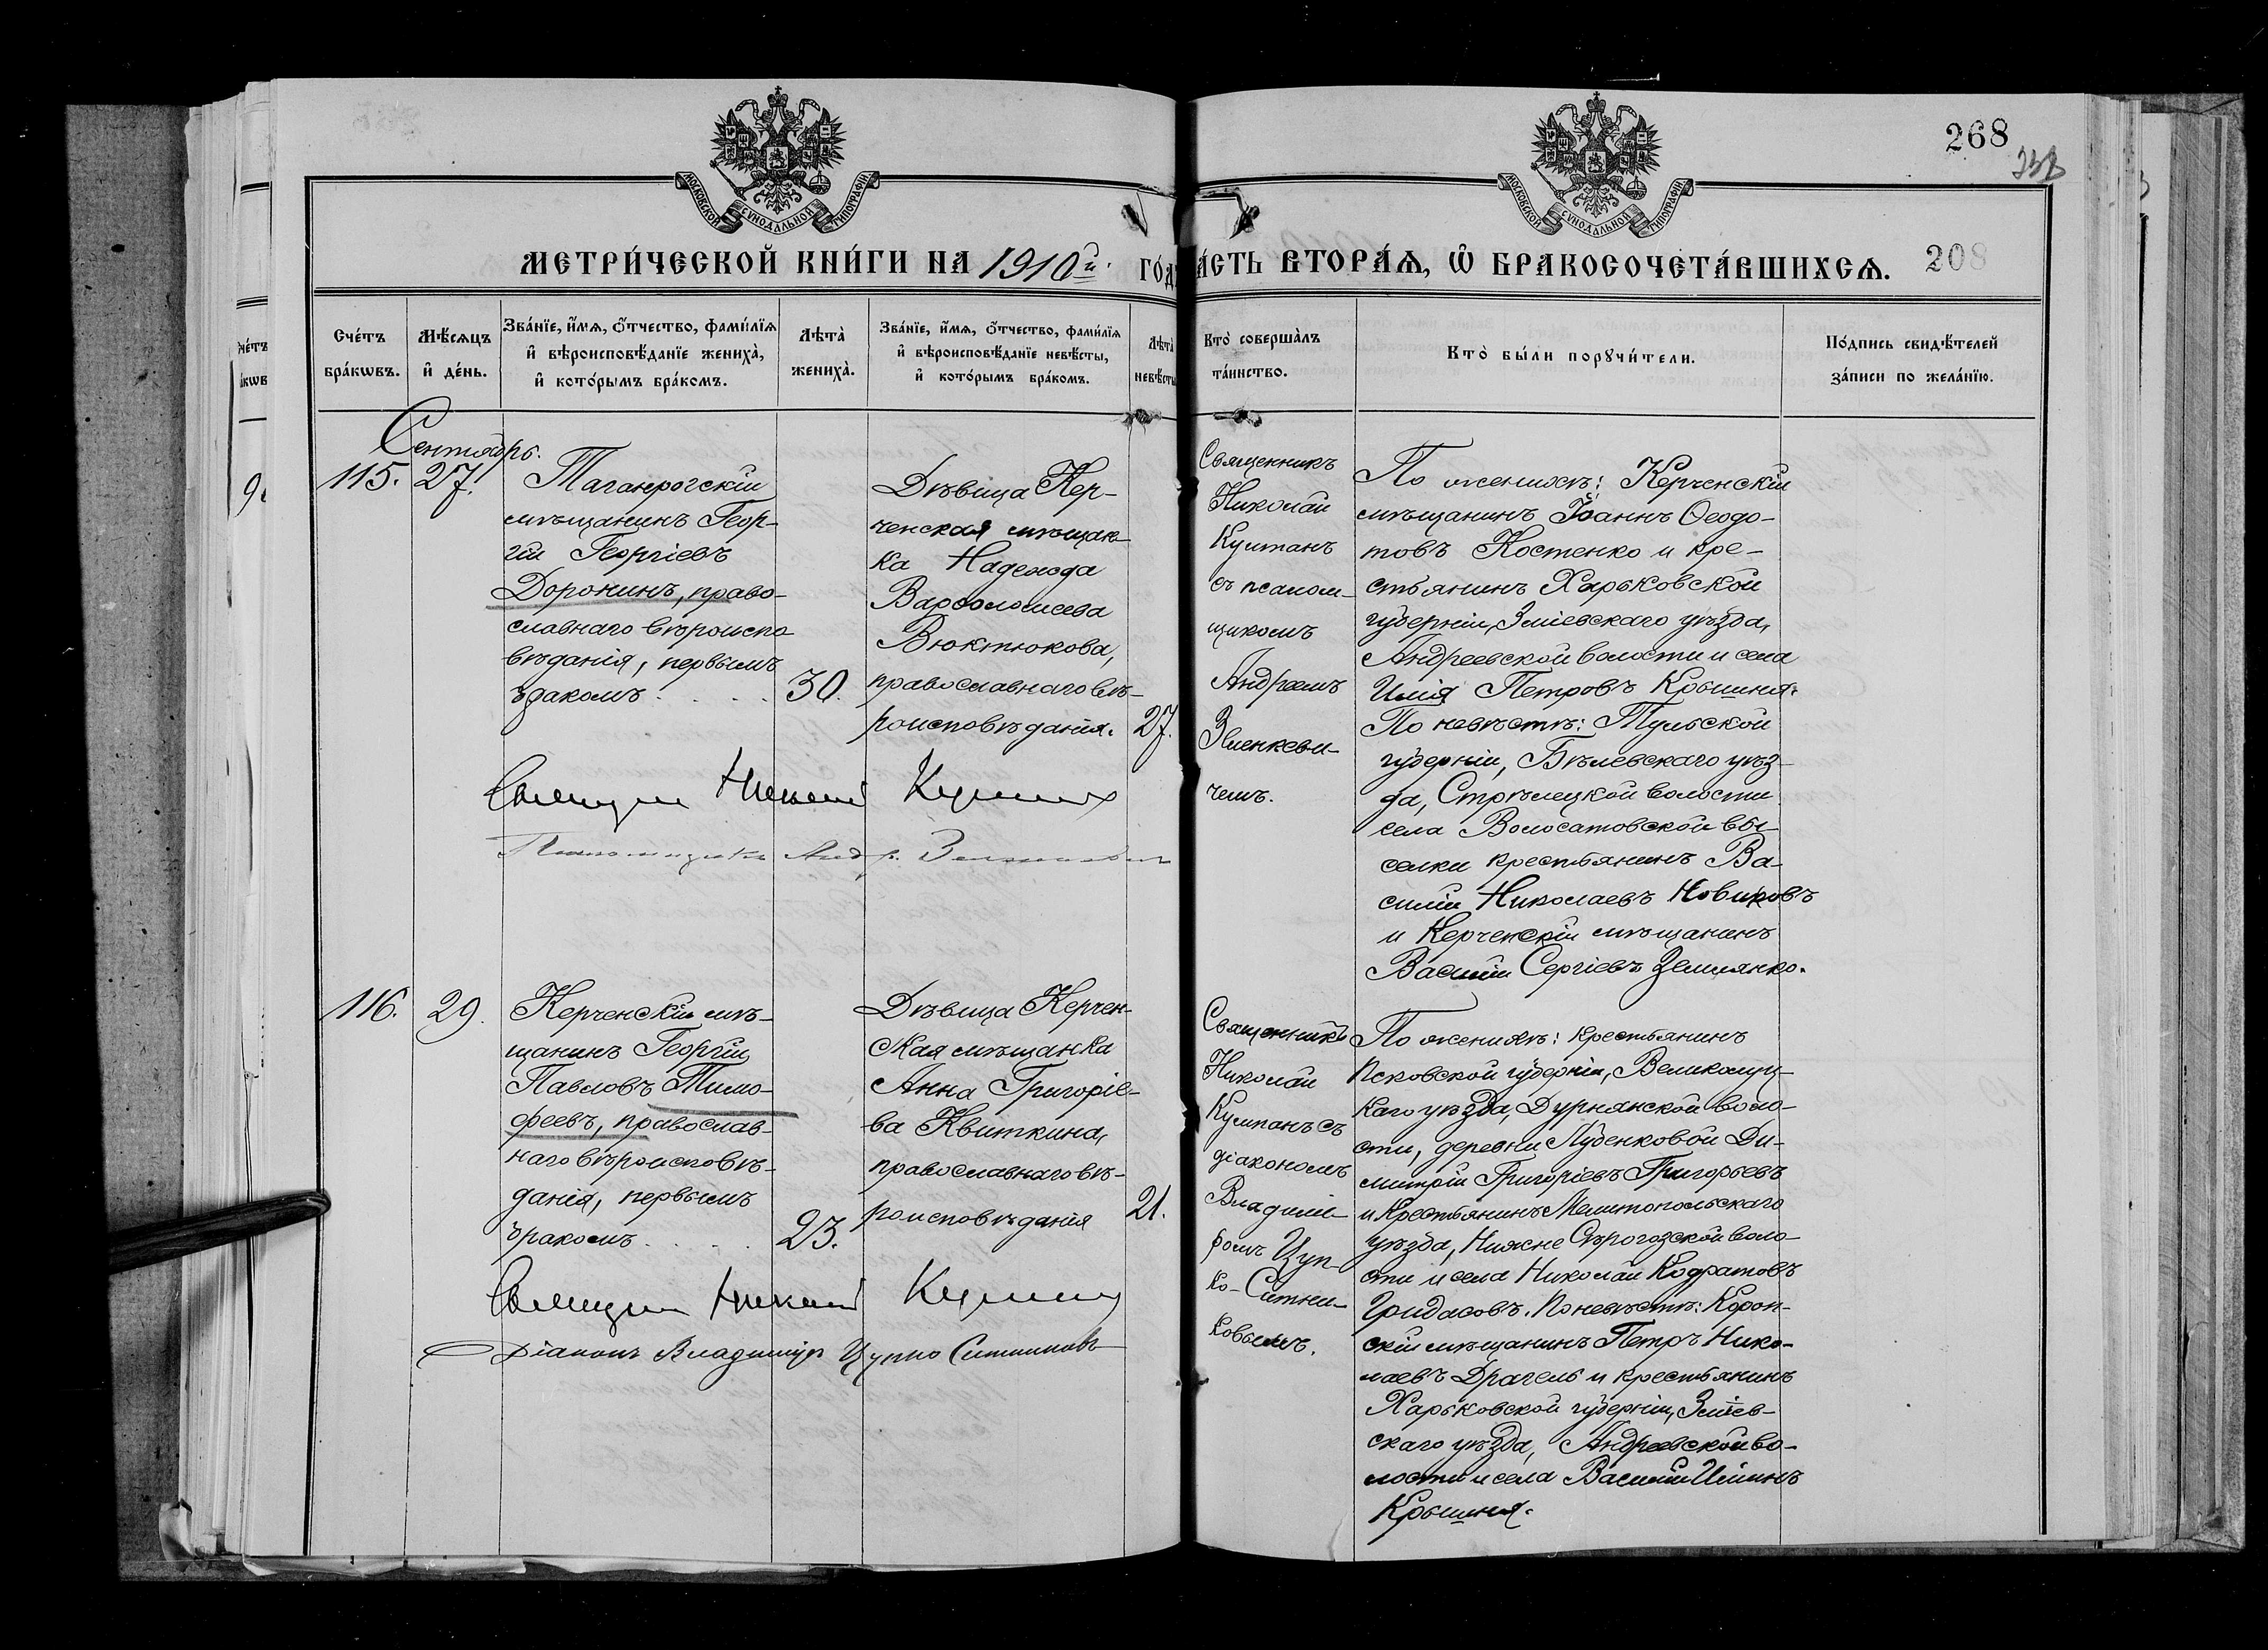 268
238
МОСКОВСКОЙ СѴНОДАЛЬНОЙ ТИПОГРАФІИ
МОСКОВСКОЙ СѴНОДАЛЬНОЙ ТИПОГРАФІИ
МЕТРИ́ЧЕСКОЙ КНИ́ГИ НА 1910й ГО́Д
А́СТЬ ВТОРА́Ѧ, Ѽ БРАКОСОЧЕТА́ВШИХСѦ.
208
Сче́тъ
бра́кѡвъ.
Мѣ́сѧцъ
и҆ де́нь.
Зва́нїе, и҆́мѧ, ѻ҆́тчество, фами́лїѧ
и҆ вѣроисповѣ́данїе жениха̀,
и҆ кото́рымъ бра́комъ.
Лѣта̀
жениха̀.
Зва́нїе, и҆́мѧ, ѻ҆́тчество, фами́лїѧ
и҆ вѣроисповѣ́данїе невѣ́сты,
и҆ кото́рымъ бра́комъ.
Лѣта̀
невѣ́сты
Кто̀ соверша́лъ
та́инство.
Кто̀ бы́ли порꙋчи́тели.
По́дпись свидѣ́телей
за́писи по жела́нїю.
Сентябрь.
115.
27.
Таганрогскій
мѣщанинъ Геор-
гій Георгіевъ
Доронинъ, право-
славнаго вѣроиспо
вѣданія, первымъ
бракомъ . . . .
30.
Дѣвица Кер-
ченская мѣщан-
ка Надежда
Варѳоломеева
Вюктюкова,
православнаго вѣ-
роисповѣданія.
27.
Священникъ
Николай
Кумпанъ
съ псалом-
щикомъ
Андреемъ
Зленкеви-
чемъ.
По женихѣ: Керченскій
мѣщанинъ Іоаннъ Ѳеодо-
товъ Костенко и кре-
стьянинъ Харьковской
губерніи, Зміевскаго уѣзда,
Андреевской волости и села
Илія Петровъ Крышня.
По невѣстѣ: Тульской
губерніи, Бѣлевскаго уѣз-
да, Стрѣлецкой волости
села Волосатовской вы-
селки крестьянинъ Ва-
силій Николаевъ Новиковъ
и Керченскій мѣщанинъ
Василій Сергіевъ Землянко.
Священникъ Николай Кумпанъ
Псаломщикъ Андр.
116.
29.
Керченскій мѣ-
щанинъ Георгій
Павловъ Тимо-
феевъ, православ-
наго вѣроисповѣ-
данія, первымъ
бракомъ . . . .
23.
Дѣвица Керчен-
ская мѣщанка
Анна Григоріе-
ва Квиткина,
православнаго вѣ-
роисповѣданія
21.
Священникъ
Николай
Кумпанъ съ
діакономъ
Владимі-
ромъ Цуп-
ко-Ситни-
ковымъ.
По женихѣ: крестьянинъ
Псковской губерніи, Великолуц-
каго уѣзда, Дурнянской воло-
сти, деревни Луденковой Ди-
митрій Григоріевъ Григорьевъ
и крестьянинъ Мелитопольскаго
уѣзда, Нижне Сѣрогозской воло-
сти и села Николай Кодратовъ
Гридасовъ. По невѣстѣ: Короп-
скій мѣщанинъ Петръ Нико-
лаевъ Драгель и крестьянинъ
Харьковской губерніи, Зміев-
скаго уѣзда, Андреевской во-
лости и села Василій Ильинъ
Крышня.
Священникъ Николай Кумпанъ
Діаконъ Владиміръ Цупко Ситниковъ